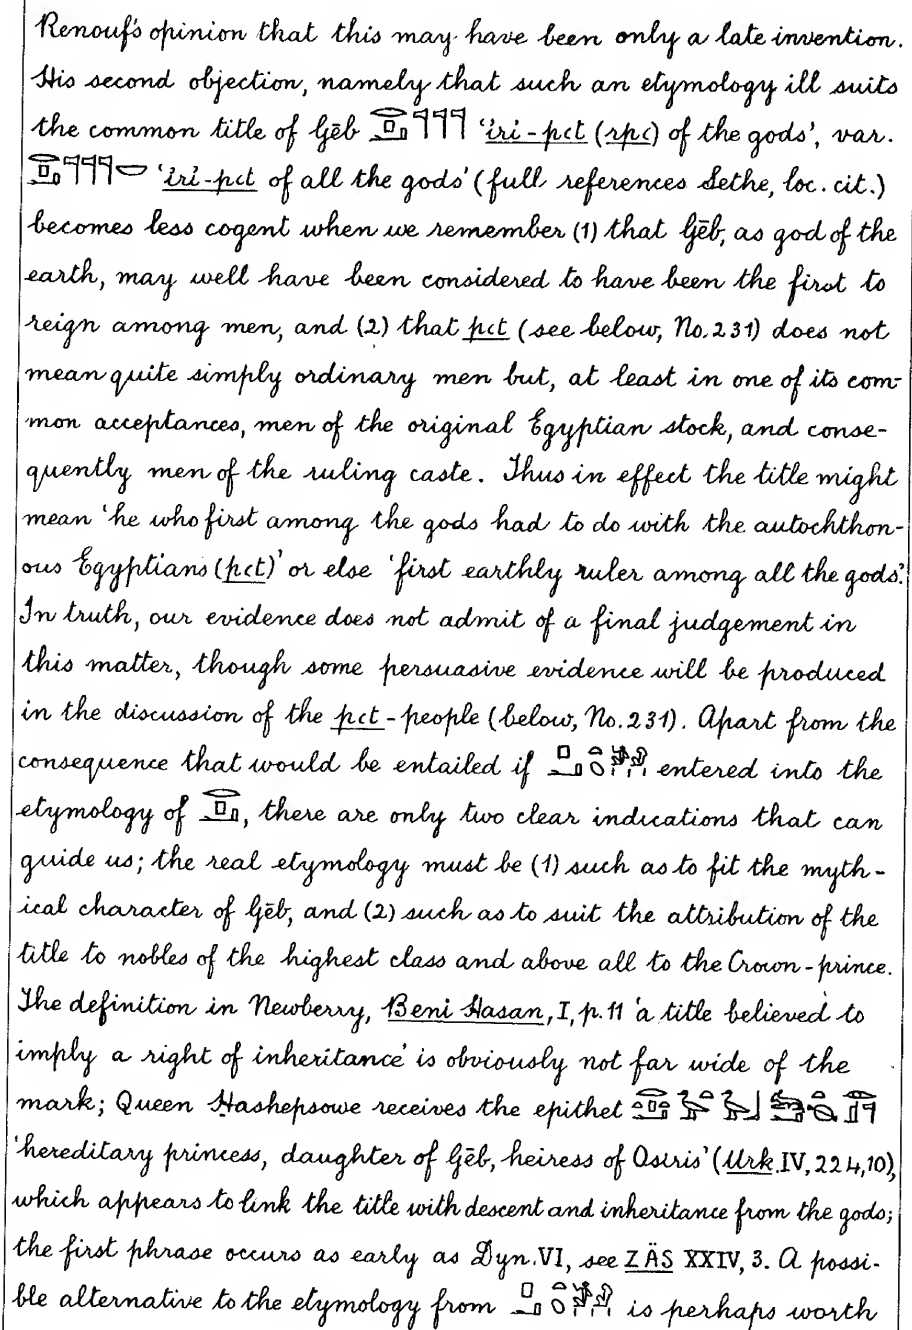 Renouf's opinion that this may have been only a late invention.
His second objection, namely that such an etymology ill suits
the common title of Gēb 𓊹𓊹𓊹 'iri-pꜥt (rpꜥ) of the gods', var.
𓊹𓊹𓊹𓎟 'iri-pꜥt of all the gods' (full references Sethe, loc. cit.)
becomes less cogent when we remember (1) that Gēb, as god of the
earth, may well have been considered to have been the first to
reign among men, and (2) that pꜥt (see below, No. 231) does not
mean quite simply ordinary men but, at least in one of its com-
mon acceptances, men of the original Egyptian stock, and conse-
quently men of the ruling caste. Thus in effect the title might
mean 'he who first among the gods had to do with the autochthon-
ous Egyptians (pꜥt)' or else 'first earthly ruler among all the gods'.
In truth, our evidence does not admit of a final judgement in
this matter, though some persuasive evidence will be produced
in the discussion of the pꜥt-people (below, No. 231). Apart from the
consequence that would be entailed if entered into the
etymology of , there are only two clear indications that can
guide us; the real etymology must be (1) such as to fit the myth-
ical character of Gēb, and (2) such as to suit the attribution of the
title to nobles of the highest class and above all to the Crown-prince.
The definition in Newberry, Beni Hasan, I, p. 11 'a title believed to
imply a right of inheritance' is obviously not far wide of the
mark; Queen Hashepsowe receives the epithet
'hereditary princess, daughter of Gēb, heiress of Osiris' (Urk. IV, 224, 10),
which appears to link the title with descent and inheritance from the gods;
the first phrase occurs as early as Dyn. VI, see ZÄS XXIV, 3. A possi-
ble alternative to the etymology from is perhaps worth